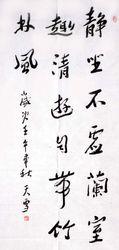 静坐不虛蘭室
趣清遊自帶竹
林風
歲次壬午年秋